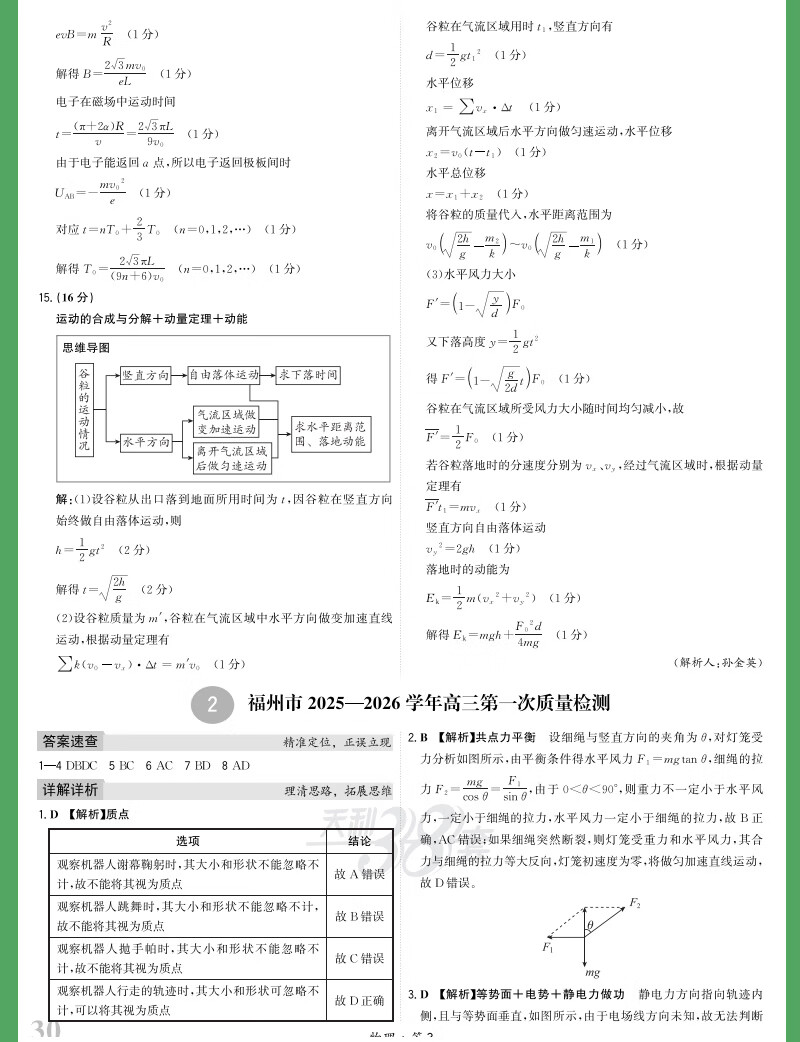 evB=m v²/R （1分）
解得 B=2√3mv₀/eL （1分）
电子在磁场中运动时间
t=(π+2α)R/v=2√3πL/9v₀ （1分）
由于电子能返回 a 点,所以电子返回极板间时
U_AB=-mv₀²/e （1分）
对应 t=nT₀+2/3T₀ （n=0,1,2,…）（1分）
解得 T₀=2√3πL/(9n+6)v₀ （n=0,1,2,…）（1分）
15.（16分）
运动的合成与分解+动量定理+动能
思维导图
谷粒的运动情况
竖直方向 自由落体运动 求下落时间
水平方向
气流区域做变加速运动
离开气流区域后做匀速运动
求水平距离范围、落地动能
解:(1)设谷粒从出口落到地面所用时间为 t,因谷粒在竖直方向
始终做自由落体运动,则
h=1/2gt² （2分）
解得 t=√(2h/g) （2分）
(2)设谷粒质量为 m′,谷粒在气流区域中水平方向做变加速直线
运动,根据动量定理有
∑k(v₀-vₓ)·Δt=m′v₀ （1分）
谷粒在气流区域用时 t₁,竖直方向有
d=1/2gt₁² （1分）
水平位移
x₁=∑vₓ·Δt （1分）
离开气流区域后水平方向做匀速运动,水平位移
x₂=v₀(t-t₁) （1分）
水平总位移
x=x₁+x₂ （1分）
将谷粒的质量代入,水平距离范围为
v₀(√(2h/g)-m₂/k)~v₀(√(2h/g)-m₁/k) （1分）
(3)水平风力大小
F′=(1-√(y/d))F₀
又下落高度 y=1/2gt²
得 F′=(1-√(g/2d)t)F₀ （1分）
谷粒在气流区域所受风力大小随时间均匀减小,故
F̅′=1/2F₀ （1分）
若谷粒落地时的分速度分别为 vₓ、v_y,经过气流区域时,根据动量
定理有
F̅′t₁=mvₓ （1分）
竖直方向自由落体运动
v_y²=2gh （1分）
落地时的动能为
E_k=1/2m(vₓ²+v_y²) （1分）
解得 E_k=mgh+F₀²d/4mg （1分）
(解析人:孙金英)
2 福州市 2025—2026 学年高三第一次质量检测
答案速查 精准定位，正误立现
1—4 DBDC 5 BC 6 AC 7 BD 8 AD
详解详析 理清思路，拓展思维
1. D 【解析】质点
选项 结论
观察机器人谢幕鞠躬时,其大小和形状不能忽略不
计,故不能将其视为质点
故 A 错误
观察机器人跳舞时,其大小和形状不能忽略不计,
故不能将其视为质点
故 B 错误
观察机器人抛手帕时,其大小和形状不能忽略不
计,故不能将其视为质点
故 C 错误
观察机器人行走的轨迹时,其大小和形状可忽略不
计,可以将其视为质点
故 D 正确
2. B 【解析】共点力平衡 设细绳与竖直方向的夹角为 θ,对灯笼受
力分析如图所示,由平衡条件得水平风力 F₁=mgtan θ,细绳的拉
力 F₂=mg/cos θ=F₁/sin θ,由于 0<θ<90°,则重力不一定小于水平风
力,一定小于细绳的拉力,水平风力一定小于细绳的拉力,故 B 正
确,AC 错误;如果细绳突然断裂,则灯笼受重力和水平风力,其合
力与细绳的拉力等大反向,灯笼初速度为零,将做匀加速直线运动,
故 D 错误。
F₂
θ
F₁
mg
3. D 【解析】等势面+电势+静电力做功 静电力方向指向轨迹内
侧,且与等势面垂直,如图所示,由于电场线方向未知,故无法判断
30